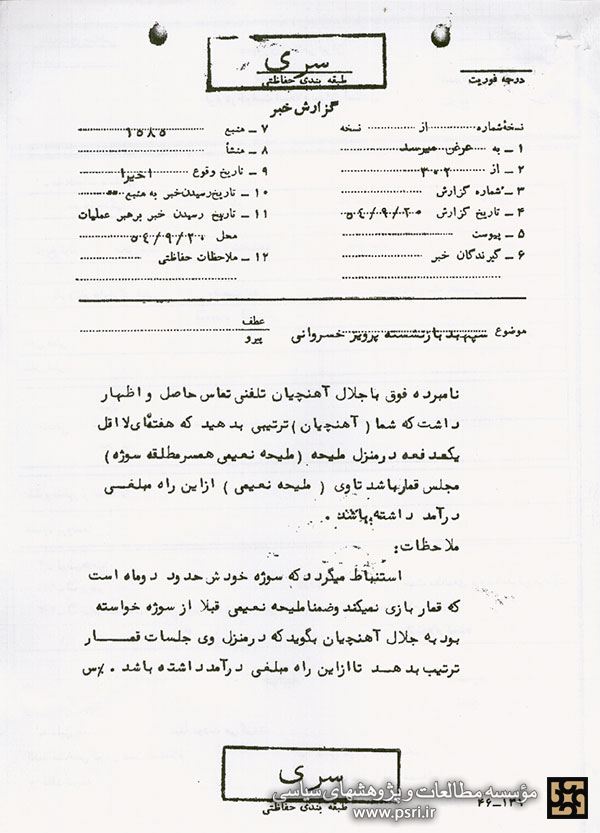 سری
طبقه بندی حفاظتی
درجه فوریت
گزارش خبر
نسخه شماره از نسخه
۱ ـ به عرض میرسد
۲ ـ از ۳۰۲
۳ ـ شماره گزارش
۴ ـ تاریخ گزارش ۵۴/۹/۲۰
۵ ـ پیوست
۶ ـ گیرندگان خبر
۷ ـ منبع ۱۵۸۵
۸ ـ منشأ
۹ ـ تاریخ وقوع اخیرا
۱۰ ـ تاریخ رسیدن خبر به منبع ""
۱۱ ـ تاریخ رسیدن خبر برهبر عملیات
محل ۵۴/۹/۲۰
۱۲ ـ ملاحظات حفاظتی
موضوع سپهبد بازنشسته پرویز خسروانی
عطف
پیرو
نامبرده فوق با جلال آهنچیان تلفنی تماس حاصل و اظهار
داشت که شما (آهنچیان) ترتیبی بدهید که هفته‌ای لااقل
یکدفعه در منزل طیحه (طیحه نعیمی همسر مطلقه سوژه)
مجلس قمار باشد تا وی (طیحه نعیمی) از این راه مبلغی
درآمد داشته باشند .
ملاحظات:
استنباط میگردد که سوژه خودش حدود دو ماه است
که قمار بازی نمیکند وضمنا طیحه نعیمی قبلا از سوژه خواسته
بود به جلال آهنچیان بگوید که در منزل وی جلسات قمار
ترتیب بدهد تا از این راه مبلغی درآمد داشته باشد . /س
سری
طبقه بندی حفاظتی
موسسه مطالعات و پژوهشهای سیاسی
www.psri.ir